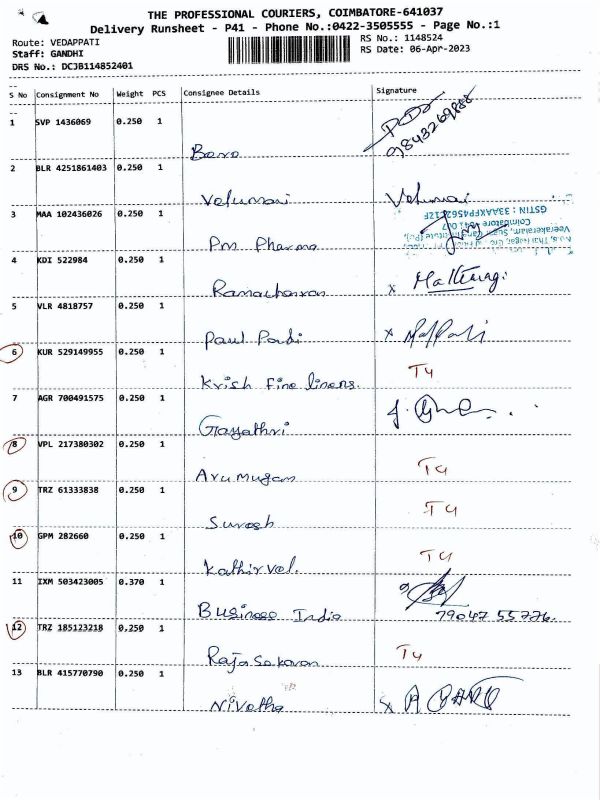 THE PROFESSIONAL COURIERS, COIMBATORE-641037
Delivery Runsheet - P41 - Phone No.:0422-3505555 - Page No.:1
Route: VEDAPPATI
RS No.: 1148524
Staff: GANDHI
RS Date: 06-Apr-2023
DRS No.: DCJB114852401
S No Consignment No Weight PCS Consignee Details Signature
1 SVP 1436069 0.250 1
9843269888
2 BLR 4251861403 0.250 1
Velumani Velumani
3 MAA 102436026 0.250 1
GSTIN : 33AAKFP4562C1ZF
Coimbatore
Veerakeralam,
Pm Pharma
4 KDI 522984 0.250 1
x
5 VLR 4818757 0.250 1
Paul Pandi x
6 KUR 529149955 0.250 1
Krish Fine liners. T4
7 AGR 700491575 0.250 1
Gayathri
8 VPL 217380302 0.250 1
Arumugam T4
9 TRZ 61333838 0.250 1
Suresh T4
10 GPM 282660 0.250 1
Kathirvel. T4
11 IXM 503423005 0.370 1
Business India 79047 55776.
12 TRZ 185123218 0.250 1
Rajasekaran T4
13 BLR 415770790 0.250 1
Nivetha x